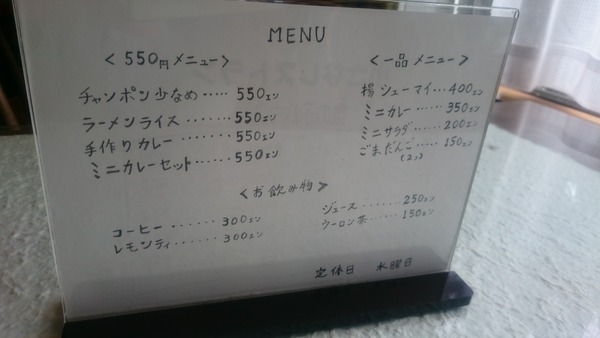 MENU
<550円メニュー>
チャンポン少なめ‥‥‥550エン
ラーメンライス‥‥‥550エン
手作りカレー‥‥‥550エン
ミニカレーセット‥‥‥550エン
<一品メニュー>
揚シューマイ…400エン
ミニカレー……350エン
ミニサラダ……200エン
ごまだんご……150エン
(2コ)
≪お飲み物≫
コーヒー‥‥‥‥300エン
レモンティ‥‥‥‥300エン
ジュース‥‥‥‥250エン
ウーロン茶‥‥‥150エン
定休日 水曜日